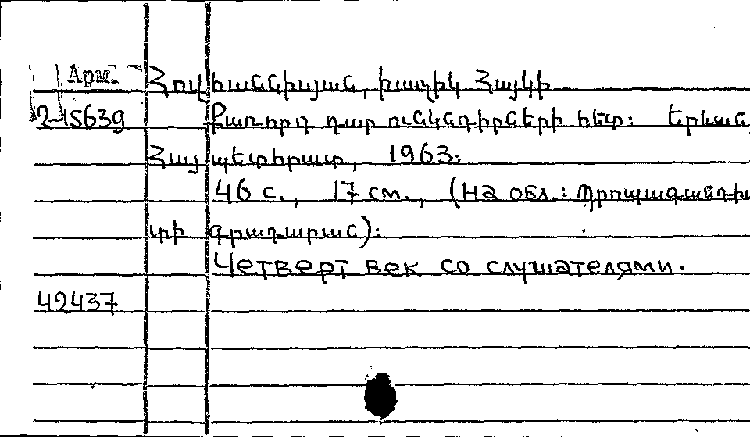 Арм. Հովհաննիսյան, Խաչիկ Հայկի
2-15639 Քառորդ դար ունկնդիրների հետ: Երևան,
Հայպետհրատ, 1963.
46 с., 17 см., (На обл.: Պրոպագանդիս
տի գրադարան):
Четверт век со слушателями.
42437